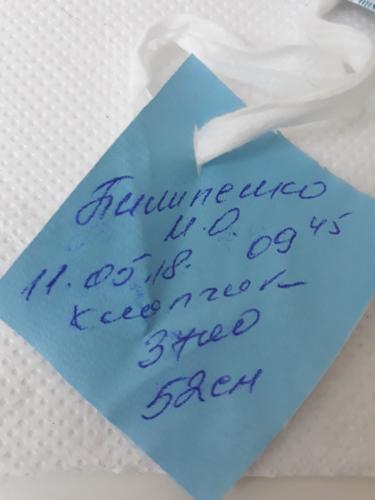 Пилипенко
М.О.
11.05.18. 09 45
хлопчик
3700
52см